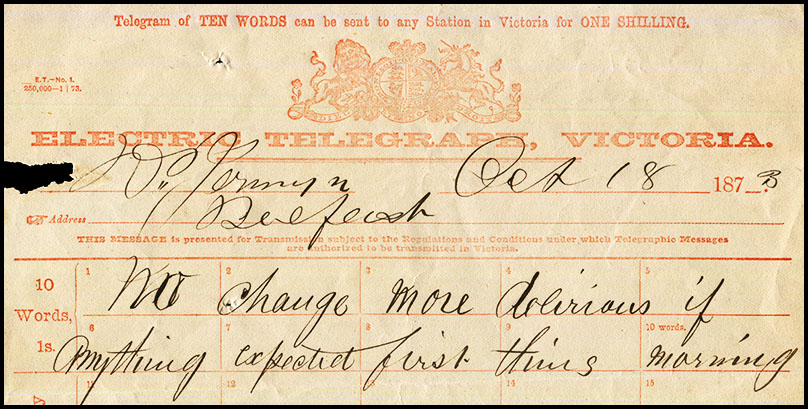 Telegram of TEN WORDS can be sent to any Station in Victoria for ONE SHILLING.
E.T.—No. 1.
250,000—1 | 73.
ELECTRIC TELEGRAPH, VICTORIA.
Dr. Jermyn Oct 18 1873.
Address Belfast
THIS MESSAGE is presented for Transmission subject to the Regulations and Conditions under which Telegraphic Messages
are authorized to be transmitted in Victoria.
1 2 3 4 5
10 Words, 1s. No change more delirious if
6 7 8 9 10 words.
Anything expected first thing morning
11 12 13 14 15